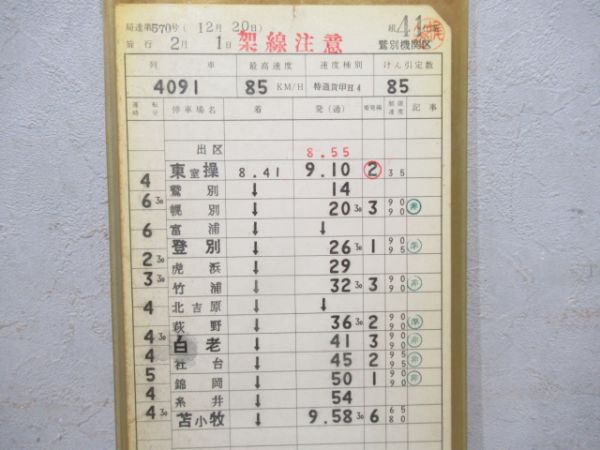 局達第570号 (12月20日)
施行 2月 1日 架線注意 組 41
鷲別機関区
列車 最高速度 速度種別 けん引定数
4091 85 KM/H 特通貨甲H4 85
運転時分 停車場名 着 発(通) 着発線 制限速度 記事
出区 8.55
東室操 8.41 9.10 2 35
4 鷲別 ↓ 14
6 30 幌別 ↓ 20 30 3 90 90
富浦 ↓ ↓
6 登別 ↓ 26 30 1 90 90
2 30 虎浜 ↓ 29
3 30 竹浦 ↓ 32 30 3 90 90
北吉原 ↓ ↓
4 萩野 ↓ 36 30 2 90 90
4 30 白老 ↓ 41 3 90 90
4 社台 ↓ 45 2 95 95
5 錦岡 ↓ 50 1 90 90
4 糸井 ↓ 54
4 30 苫小牧 ↓ 9.58 30 6 65 80